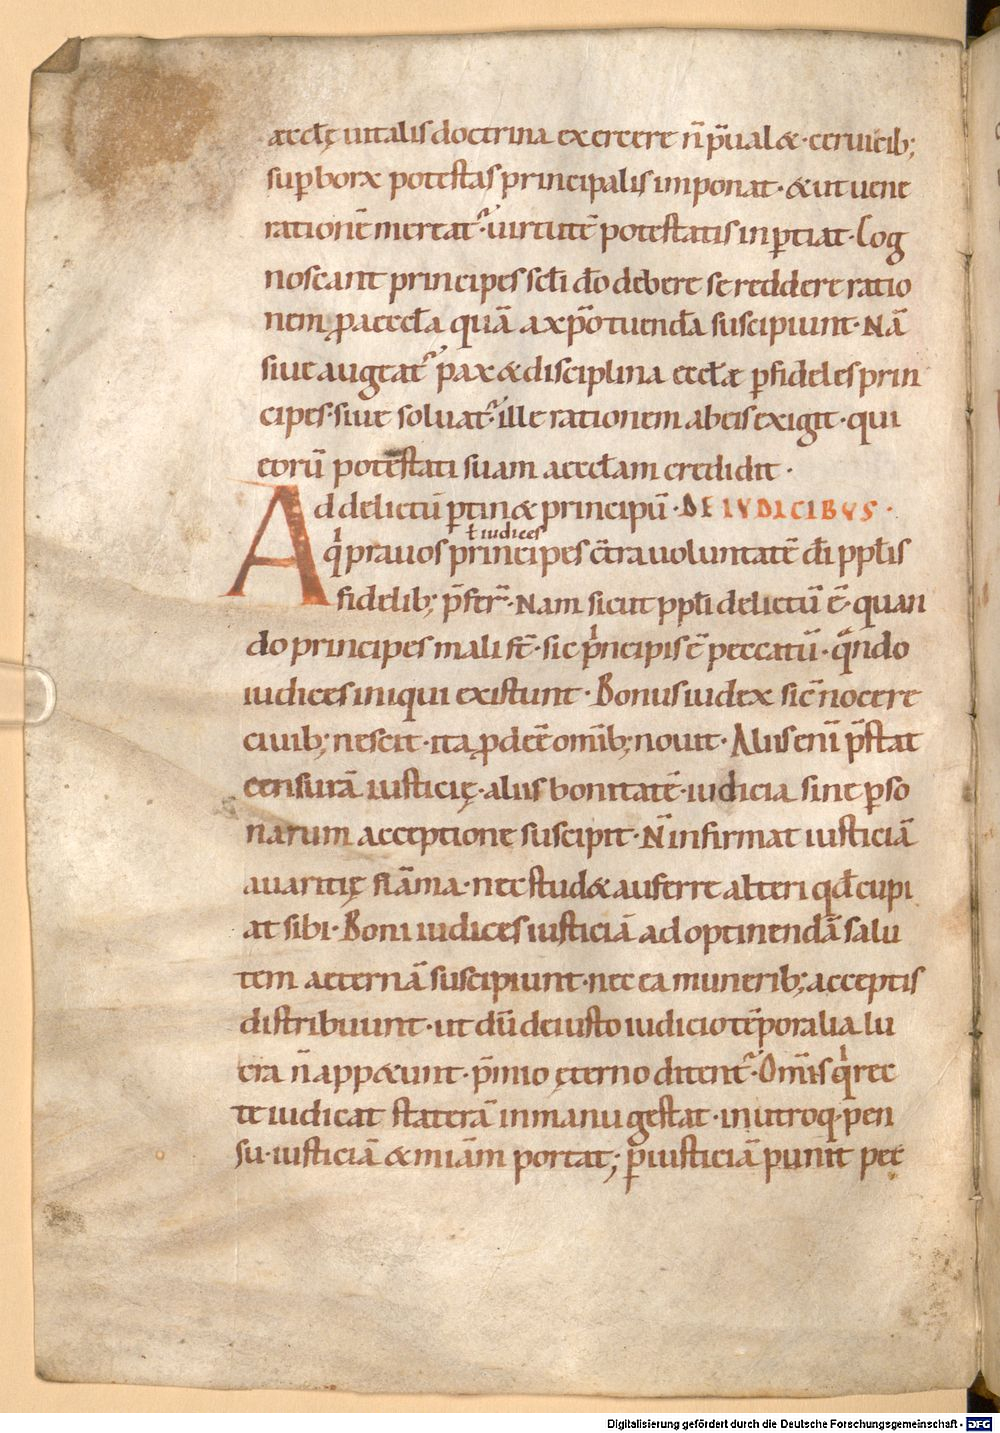 aeccl̄ę utilis doctrina exercere n̄ p̄ualet· ceruicib;
sup̱borꝝ potestas principalis imponat· & ut uene
rationē mereat᷑· uirtutē potestatis inp̱tiat· Cog
noscant principes scl̄i dō debere se reddere ratio
nem ꝓ aeccl̄a quā a xp̄o tuendā suscipiunt· Nā
siue augeat᷑ pax & disciplina eccl̄æ p̱ fideles prin
cipes· siue soluat᷑· ille rationem ab eis exigit· qui
eorū potestati suam aeccl̄am credidit·
Ad delictū p̱tin& principū· DE IVDICIBVS·
ł iudices
qͥ prauos principes c̄tra uoluntatē dī ppl̄is
fidelib; p̄fer᷑· Nam sicut ppl̄i delictū ē· quan
do principes mali st̄· sic pͥncipis ē peccatū· qͣndo
iudices iniqui existunt· Bonus iudex sic̄ nocere
ciuib; nescit· ita ꝓdeē omīb; nouit· Aliis enī p̄stat
censurā iusticię· aliis bonitatē· iudicia sine p̱so
narum acceptione suscipit· N̄ infirmat iusticiā
auaritię flāma· nec stud& auferre alteri qd̄ cupi
at sibi· Boni iudices iusticiā ad optinendā salu
tem aeternā suscipiunt· nec ea munerib; acceptis
distribuunt· ut dū de iusto iudicio tēporalia lu
cra n̄ app&unt· p̄mio ęterno ditent᷑· Om̄is qͥ rec
te iudicat staterā in manu gestat· in utroq· pen
su· iusticiā & miām portat; p̱ iusticiā punit pec
Digitalisierung gefördert durch die Deutsche Forschungsgemeinschaft - DFG